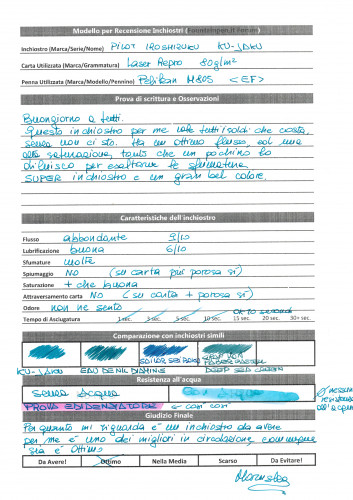 Modello per Recensione Inchiostri (Fountainpen.it Forum)
Inchiostro (Marca/Serie/Nome) PILOT IROSHIZUKU KU-JAKU
Carta Utilizzata (Marca/Grammatura) Laser Repro 80g/m²
Penna Utilizzata (Marca/Modello/Pennino) Pelikan M805 <EF>
Prova di scrittura e Osservazioni
Buongiorno a tutti.
Questo inchiostro per me vale tutti i soldi che costa,
senza non ci sto. Ha un ottimo flusso, ed una
alta saturazione, tanto che un pochino lo
diluisco per esaltarne le sfumature
SUPER inchiostro e un gran bel colore.
Caratteristiche dell'inchiostro
Flusso abbondante 9/10
Lubrificazione buona 6/10
Sfumature molte
Spiumaggio NO (su carta più porosa sì)
Saturazione + che buona
Attraversamento carta NO (su carta + porosa sì)
Odore non ne sento
Tempo di Asciugatura 1 sec. 5 sec. 10 sec. 15 sec. 20 sec. 30+ sec.
Comparazione con inchiostri simili
KU-JAKU EAU DE NIL DIAMINE
Resistenza all'acqua
Senza Acqua Con Acqua
PROVA EVIDENZIATORE
Giudizio Finale
Per quanto mi riguarda è un inchiostro da avere
per me è uno dei migliori in circolazione comunque
sia è Ottimo
Da Avere! Ottimo Nella Media Scarso Da Evitare!